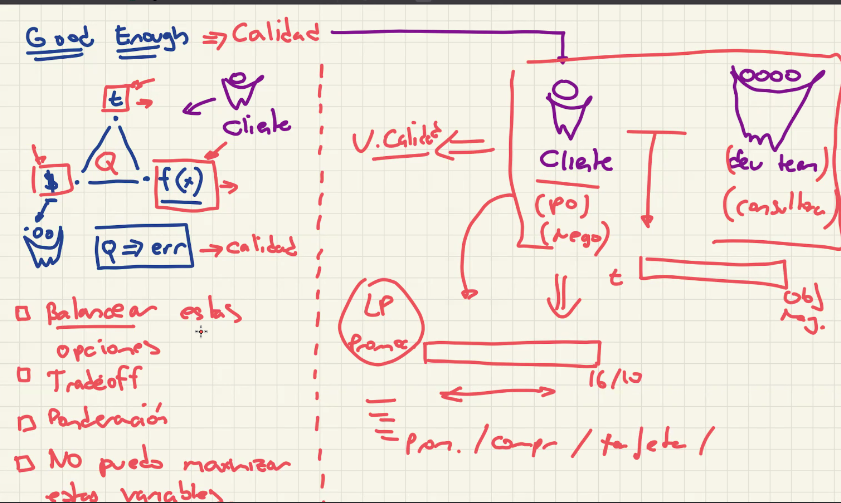 Good Enough => Calidad
t
Cliente
Q
$
f(x)
Q => err → calidad
Balancear estas
opciones
Tradeoff
Ponderación
NO puedo maximizar
estas variables
V. Calidad
Cliente
(PO)
(Nego)
(dev team)
(consultora)
t
Obj
Neg.
LP
Promoc
16/10
Prom. / compr / tarjeta /